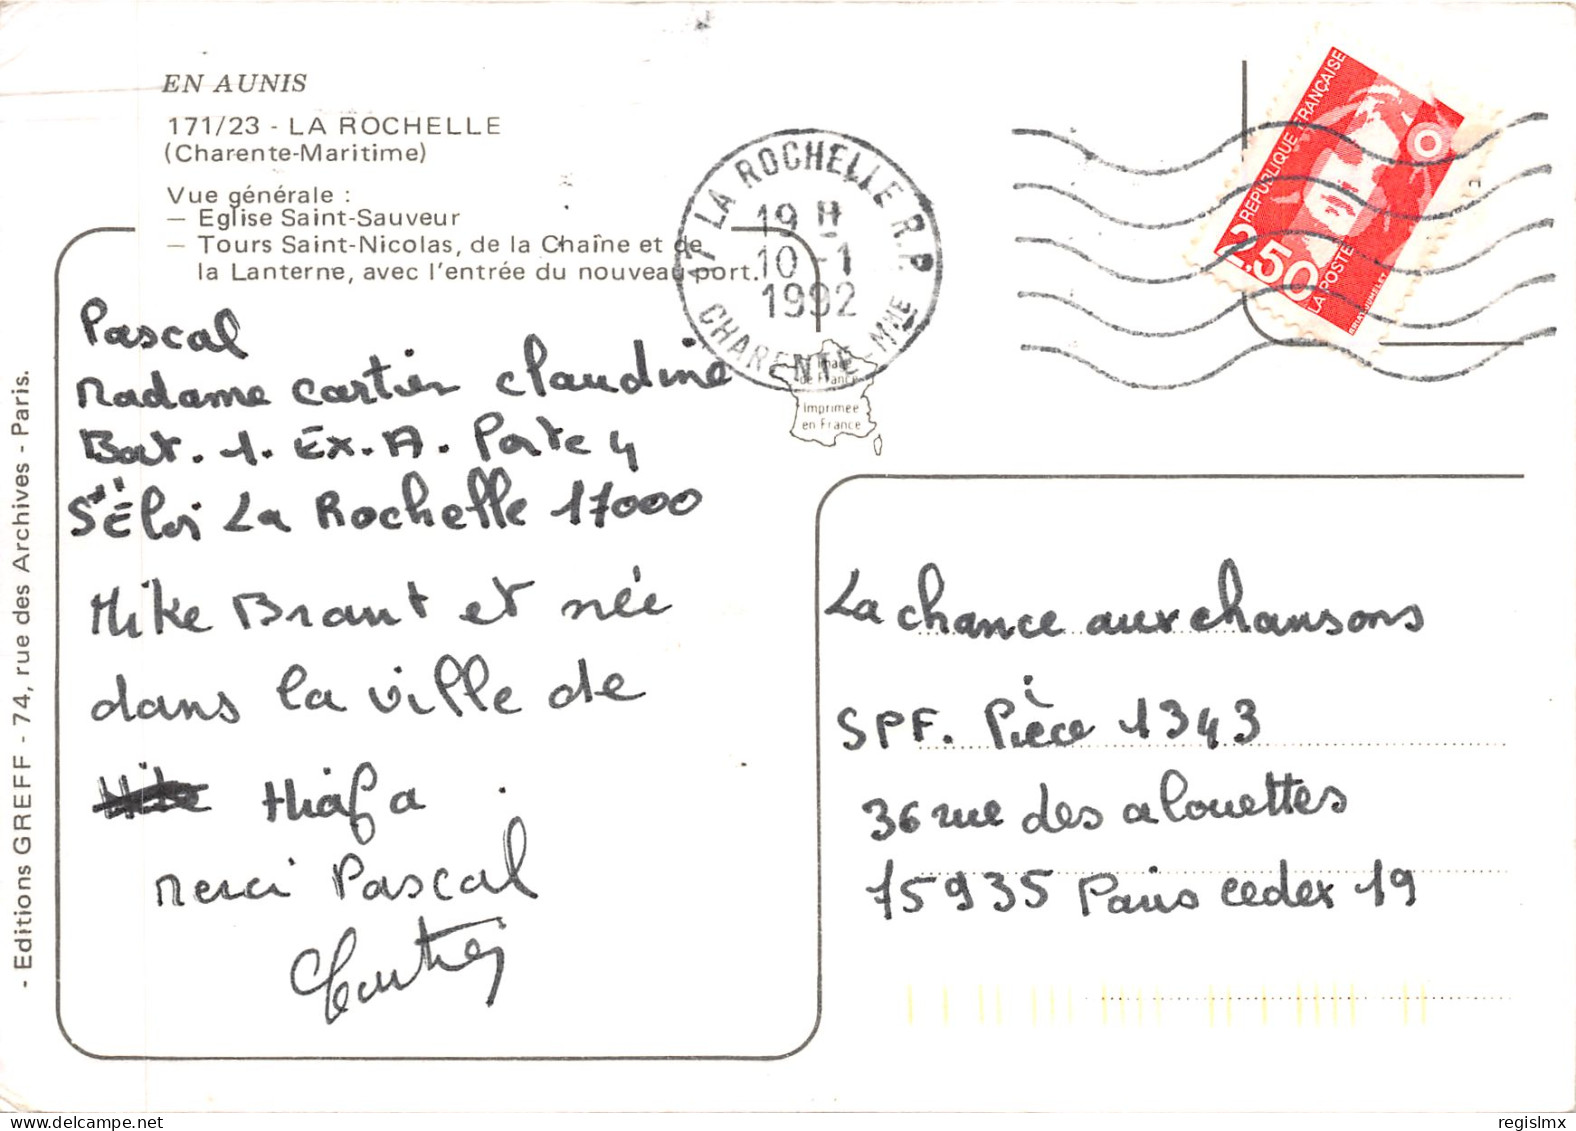 EN AUNIS
171/23 - LA ROCHELLE
(Charente-Maritime)
Vue générale :
— Eglise Saint-Sauveur
— Tours Saint-Nicolas, de la Chaîne et de
la Lanterne, avec l'entrée du nouveau port.
17 LA ROCHELLE R.P.
19 H
10-1
1992
CHARENTE-MME
REPUBLIQUE FRANÇAISE
2,50
LA POSTE
BRIAT JUMELET
de France
Imprimée
en France
Pascal
Madame Cartier Claudine
Bat. 1. Ex. A. Porte 4
St Éloi La Rochelle 17000
Mike Brant et née
dans la ville de
Hiafa
Merci Pascal
Cartier
La chance aux chansons
SPF. Pièce 1343
36 rue des alouettes
75935 Paris cedex 19
- Editions GREFF - 74, rue des Archives - Paris.
regislmx